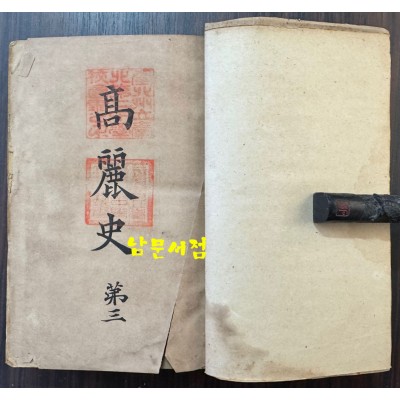 高麗史
第三
남문서점